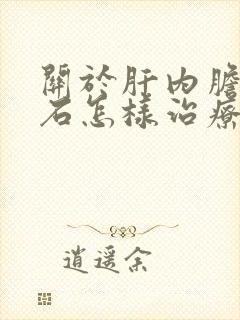 關於肝内膽
石怎樣治療
逍遥余